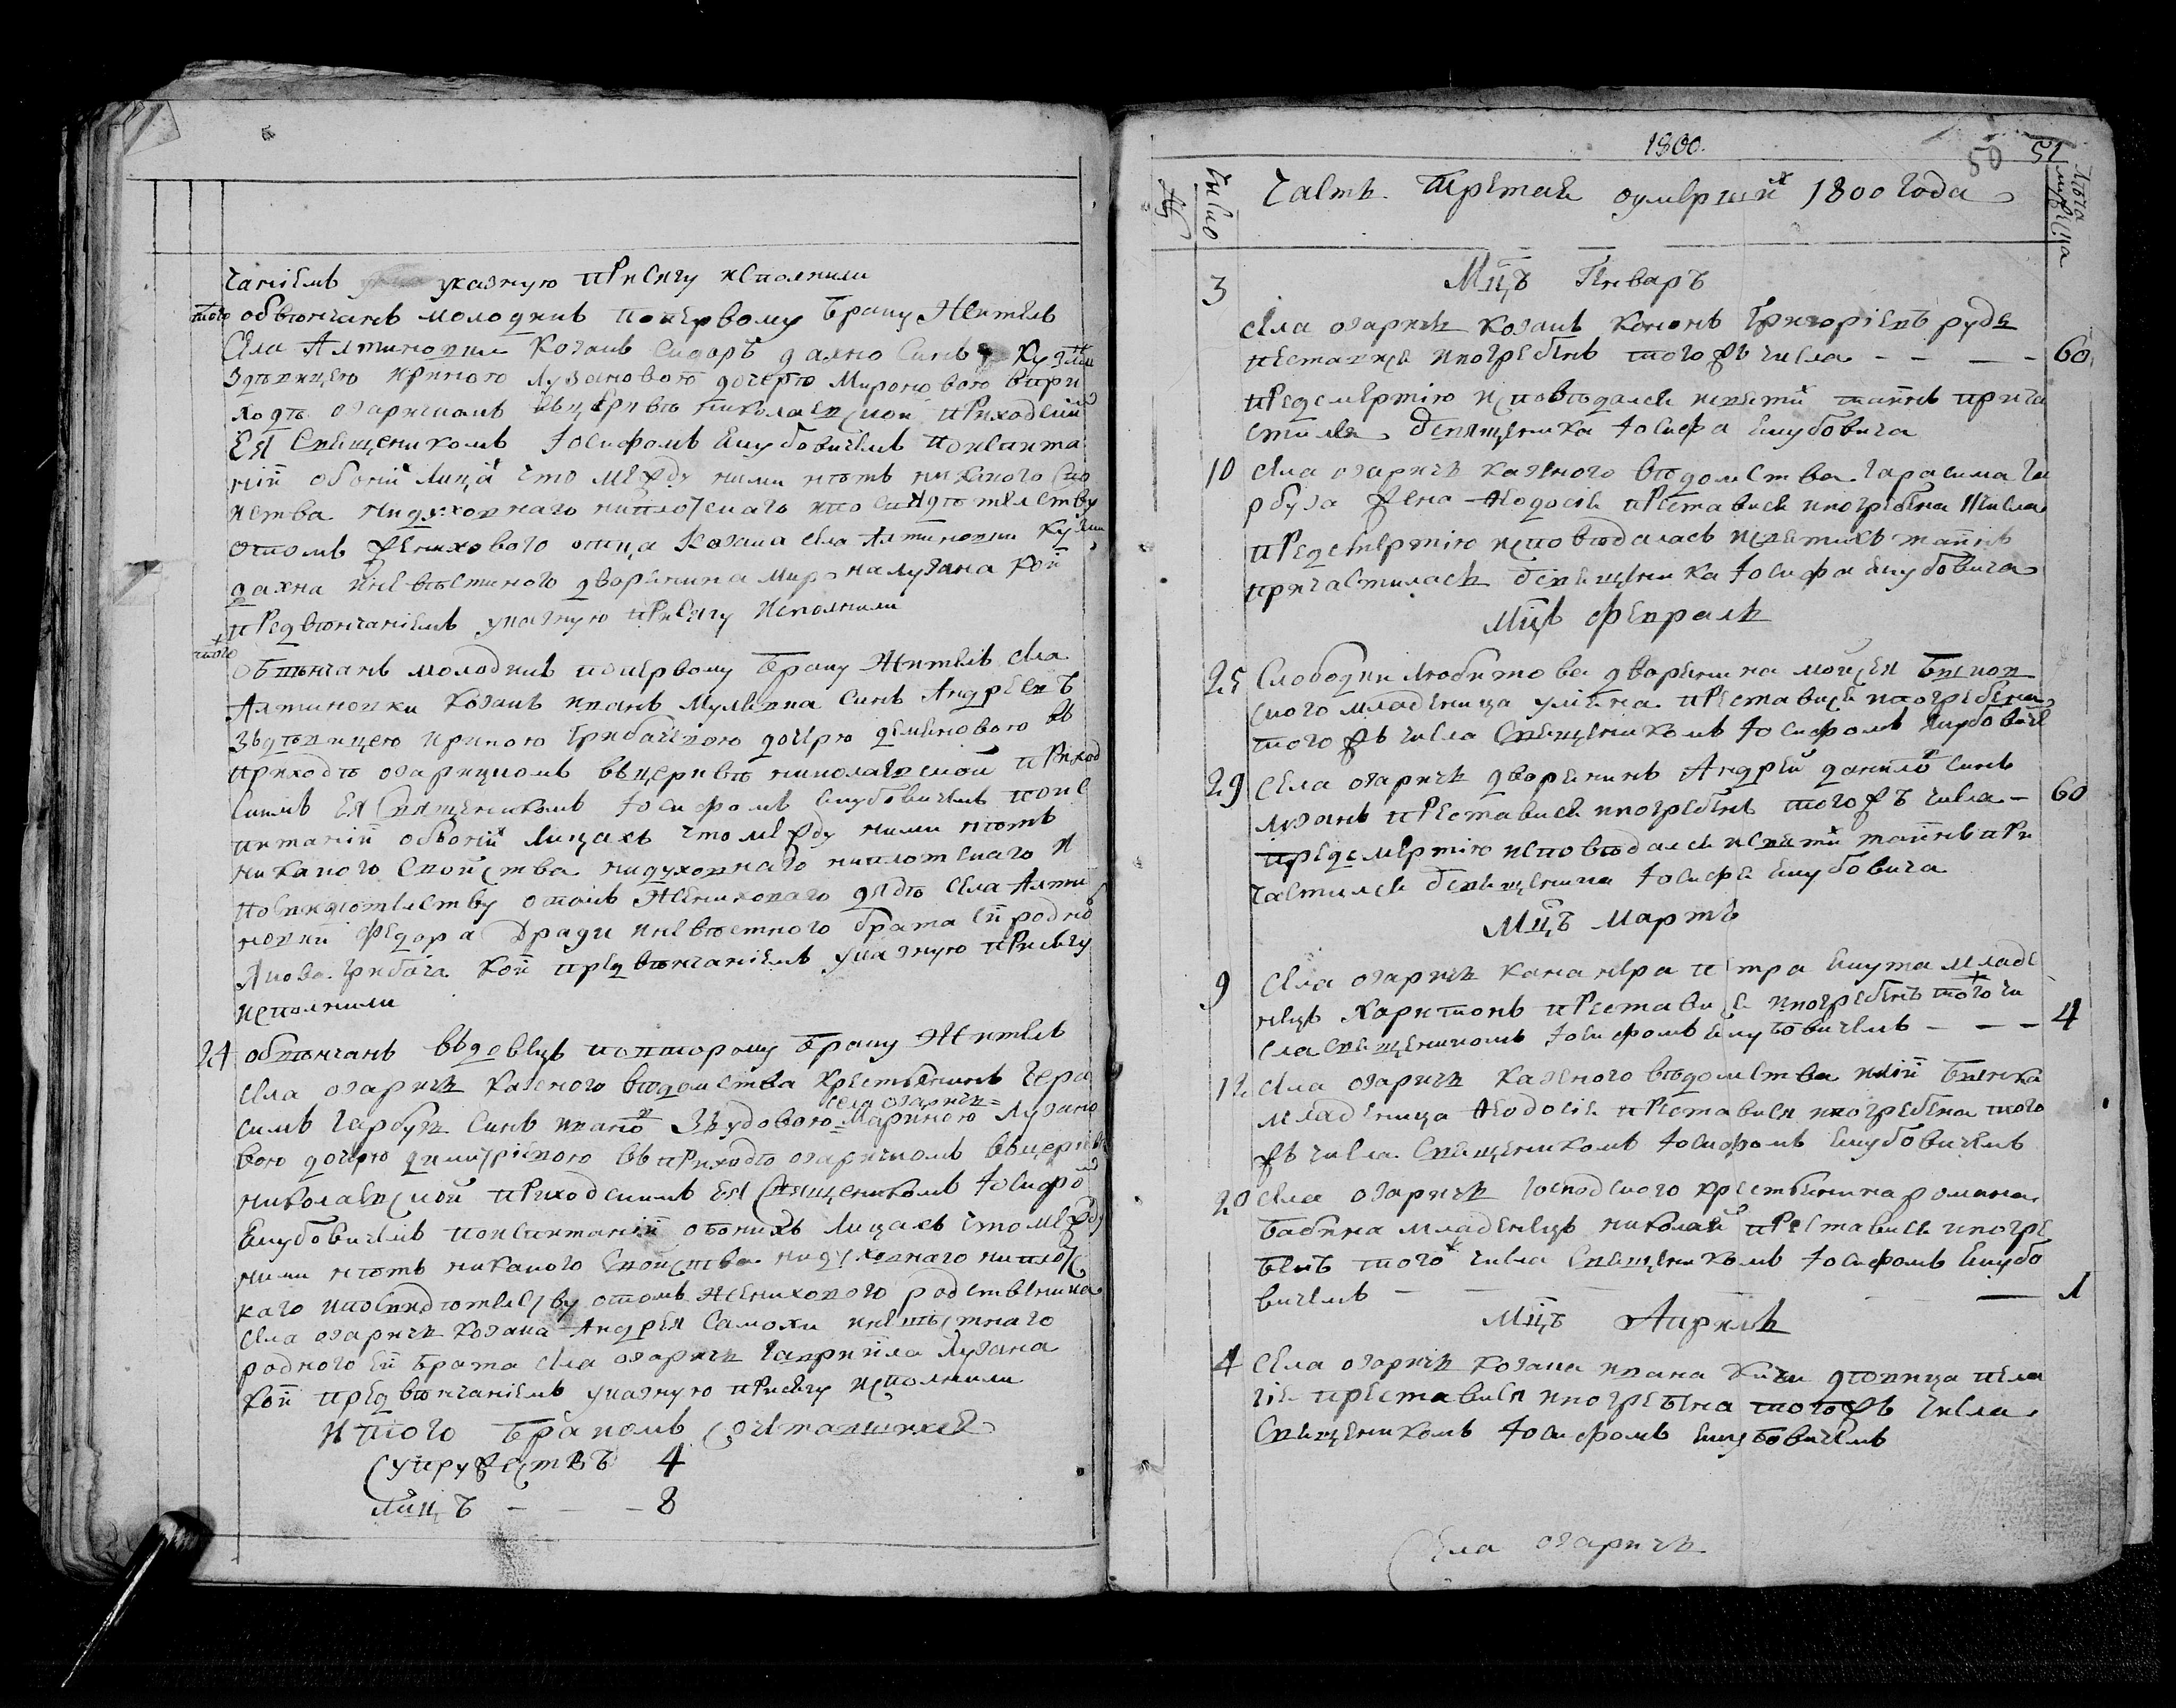 чаніемъ указную присягу исполнили
того обвѣнчанъ молодикъ поперв­ому браку житель
села Алтиновки козакъ Сидоръ дахно синъ Кузми
здѣвицею Ириною Лузановою дочерю Мироновою впри
ходѣ озаричкомъ въцерквѣ николаевской приходским
ея священикомъ Іосифомъ Ешубовичемъ поиспита
ніи обоих лицъ что между ними нѣтъ никакого сво
иства нидуховнаго ниплотскаго ипо свидѣтелству
отомъ женихового отца козака села Алтиновки Кузми
дахна иневѣстиного дворенина Мирона лузана кои
предвѣнчаніемъ указную присягу исполнили
того
обвѣнчанъ молодикъ поперв­ому браку житель села
Алтиновки козакъ иванъ синъ Андреевъ
здѣвицею Ириною Грибачевою дочерю деменовою въ
приходѣ озарицкомъ въцерквѣ николаевской приход
скимъ ея священикомъ Іосифомъ Ешубовичемъ поис
питаніи обоихъ лицахъ что между ними нѣтъ
никакого своиства нидуховнаго ниплотскаго и
посвидѣтелству отомъ жениховаго дядѣ села Алти
новки федора иневѣстного брата ей родно
Якова Грибача кои предвѣнчаніемъ указную присягу
исполнили
24 обвѣнчанъ въдовецъ повторому браку житель
села озаричъ казеного вѣдомства крестьянинъ Гера
села озаричъ
симъ Гарбузъ синъ ивановъ зъудовою Мариною Лузано
вою дочерю димитріевою въприходѣ озаричкомъ въцерквѣ
николаевской приходскимъ ея священикомъ Іосифом
Ешубовичемъ поиспитаніи обоихъ лицахъ что между
ними нѣтъ никакого своиства нидуховнаго ниплотс
каго ипосвидѣтелству отомъ женихового родственика
села озаричъ козака Андрея Самохи иневѣстнаго
родного ей брата села озаричъ Гавриила Лузана
кои предвѣнчаніемъ указную присягу исполнили
Итого бракомъ сочетавшихся
супружествъ 4
лицъ - - - 8
1800.
50 51
Число
Лѣта
Часть третая оумершихъ 1800 года
3 Мцъ Генваръ
села озаричъ козакъ кононъ Григоріевъ
преставися ипогребенъ того жъ числа - - - - 60
предсмертію исповѣдался исвятихъ таинъ прича
стился усвященика Іосифа Ешубовича
10 села озаричъ казеного вѣдомства Гарасима Га
рбуза жена Феодосія преставися ипогребена числа
предсмертію исповѣдалась исвятихъ таинъ
причастилась усвященика Іосифа Ешубовича
Мцъ Февраль
25 слободки Любитова дворенина мойсея
ского младеница уліяна преставися ипогребена
того жъ числа священикомъ Іосифомъ Ешубовиче
29 села озаричъ дворенинъ Андрей данилов синъ
лузанъ преставися ипогребенъ того жъ числа - 60
предсмертію исповѣдался исвятих таинъ при
частился усвященика Іосифа Ешубовича
Мцъ Мартъ
9 села озаричъ Петра Ешута младе
нецъ Харитонъ преставися ипогребенъ того чи
сла священикомъ Іосифомъ Ешубовичемъ - - - 4
12 села озаричъ казеного вѣдомства
младеница Феодосія преставися ипогребена того
жъ числа священикомъ Іосифомъ Ешубовичемъ
20 села озаричъ господского крестьянина романа
бабича младенецъ николай преставися ипогре
бенъ того числа священикомъ Іосифомъ Ешубо
вичемъ - - - - 1
Мцъ Априль
4 села озаричъ козака ивана дѣвица пела
гія преставися ипогребена тогожъ числа
священикомъ Іосифомъ Ешубовичемъ
Села озаричъ